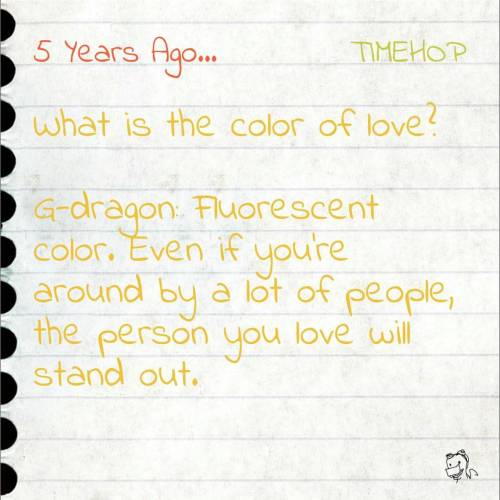 5 Years Ago... TIMEHOP
what is the color of love?
G-dragon: Fluorescent
color. Even if you're
around by a lot of people,
the person you love will
stand out.